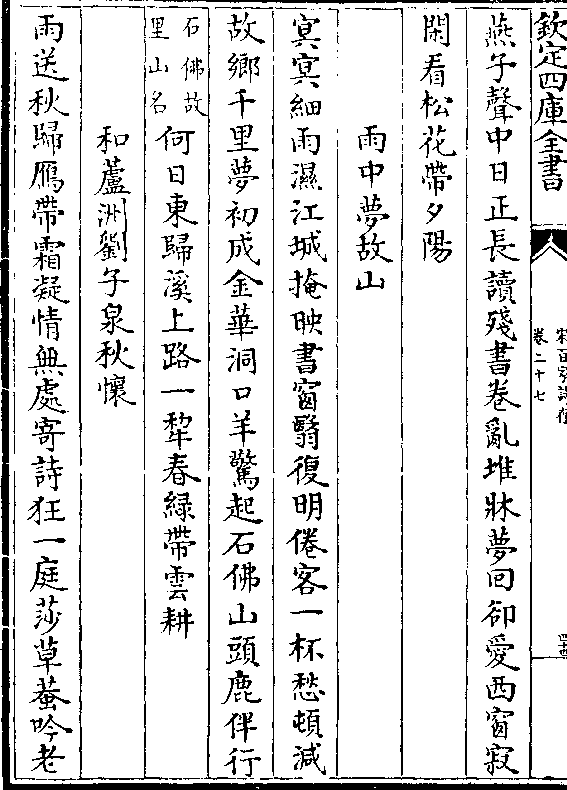 欽定四庫全書
宋百家詩存
卷二十七
燕子聲中日正長讀殘書卷亂堆牀夢回卻愛西窗寂
閑看松花帶夕陽
雨中夢故山
冥冥細雨濕江城掩映書窗翳復明倦客一杯愁頓減
故鄉千里夢初成金華洞口羊驚起石佛山頭鹿伴行
石佛故
里山名
何日東歸溪上路一犂春緑帶雲耕
和蘆洲劉子泉秋懷
雨送秋歸鴈帶霜凝情無處寄詩狂一庭莎草蛩吟老